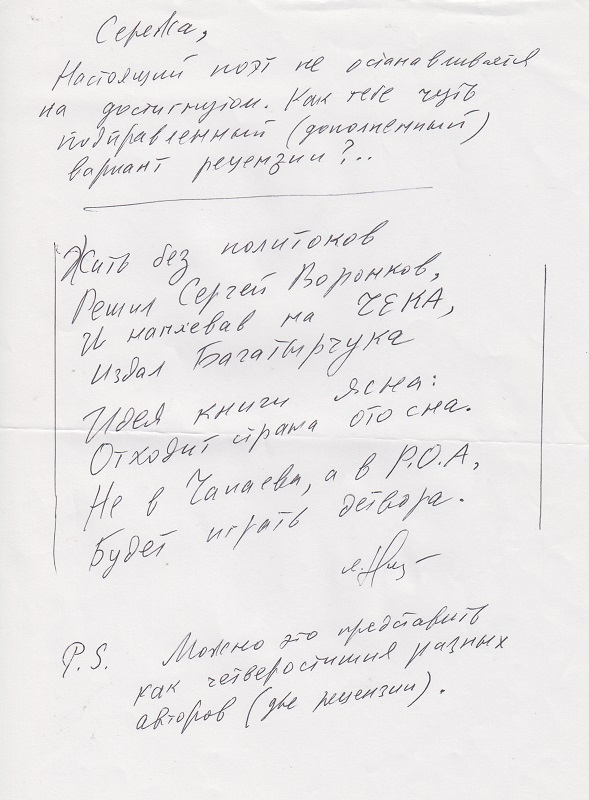 Сережа,
Настоящий поэт не останавливается
на достигнутом. Как тебе чуть
подправленный (дополненный)
вариант рецензии?..
Жить без политоков
Решил Сергей Воронков,
И наплевав на ЧЕКА,
Издал Багатырчука
Идея книги ясна:
Отходит страна ото сна.
Не в Чапаева, а в Р.О.А,
Будет играть детвора.
P.S. Можно это представить
как четверостишия разных
авторов (две рецензии).